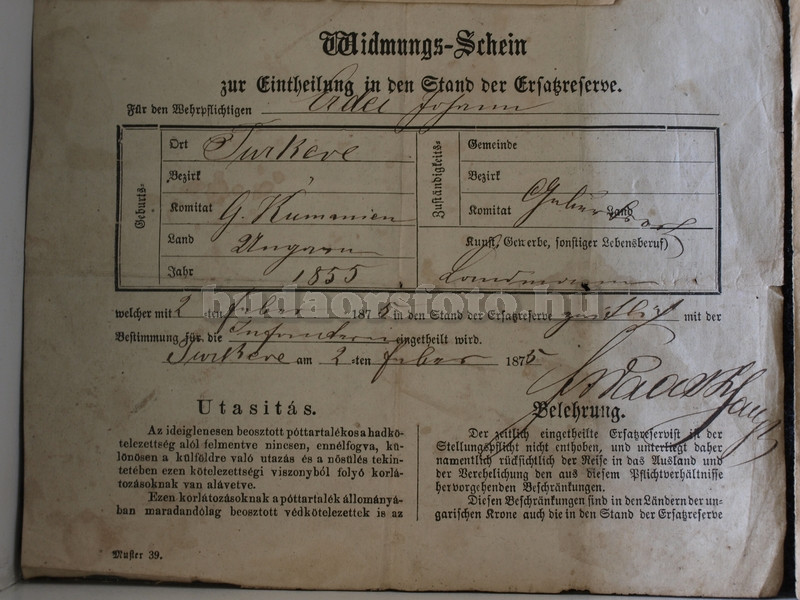 Widmungs-Schein
zur Eintheilung in den Stand der Ersatzreserve.
Für den Wehrpflichtigen Erdei Johann
Geburts-
Ort Turkeve
Bezirk
Komitat G. Kumanien
Land Ungarn
Jahr 1855
Zuständigkeits-
Gemeinde
Bezirk
Komitat Land
Kunst, Gewerbe, sonstiger Lebensberuf)
Landmann
budaorsfoto.hu
welcher mit 2 -ten 1875 in den Stand der Ersatzreserve zeitlich mit der
Bestimmung für die Infanterie eingetheilt wird.
Turkeve am 2-ten 1875
Utasitás.
Az ideiglenesen beosztott póttartalékos a hadkö-
telezettség alól felmentve nincsen, ennélfogva, kü-
lönösen a külföldre való utazás és a nősülés tekin-
tetében ezen kötelezettségi viszonyból folyó korlá-
tozásoknak van alávetve.
Ezen korlátozásoknak a póttartalék állományá-
ban maradandólag beosztott védkötelezettek is az
Belehrung.
Der zeitlich eingetheilte Ersatzreservist ist der
Stellungspflicht nicht enthoben, und unterliegt daher
namentlich rücksichtlich der Reise in das Ausland und
der Verehelichung den aus diesem Pflichtverhältnisse
hervorgehenden Beschränkungen.
Diesen Beschränkungen sind in den Ländern der un-
garischen Krone auch die in den Stand der Ersatzreserve
Muster 39.